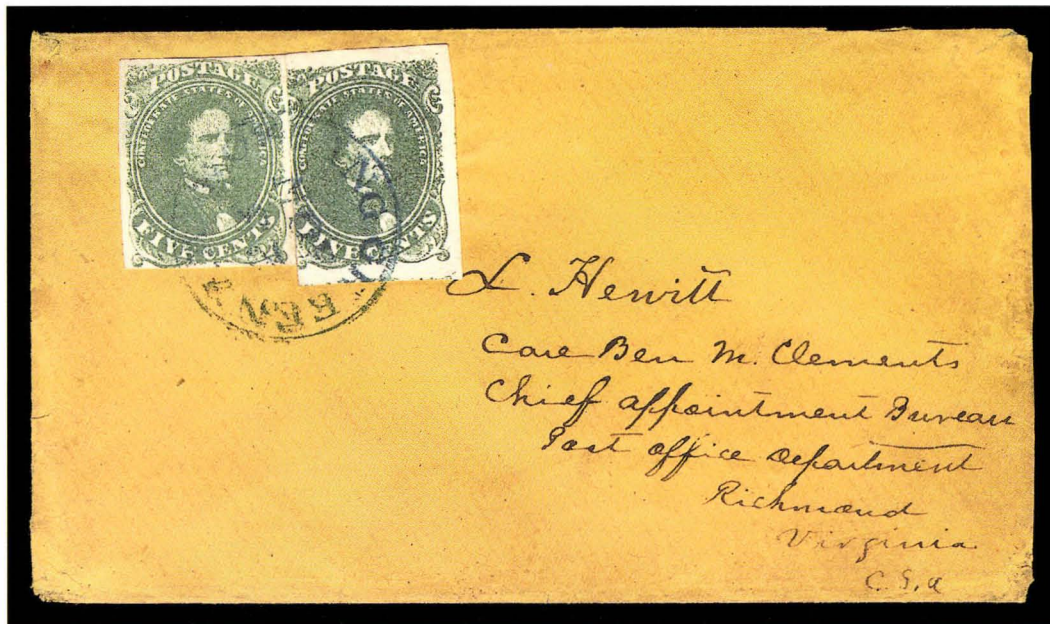 POSTAGE
CONFEDERATE STATES OF AMERICA
FIVE CENTS
POSTAGE
CONFEDERATE STATES OF AMERICA
FIVE CENTS
L. Hewitt
Care Ben M. Clements
Chief appointment Bureau
Post office department
Richmond
Virginia
C.S.a